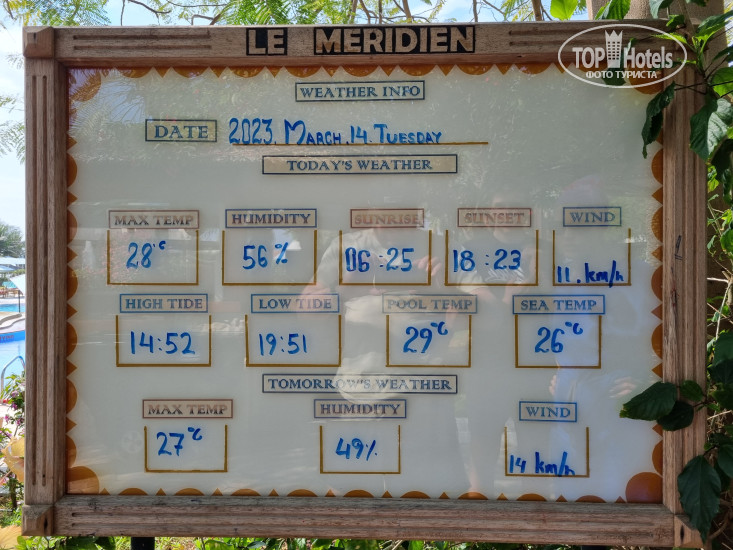 LE MERIDIEN
TOP Hotels
ФОТО ТУРИСТА
WEATHER INFO
DATE 2023. MARCH. 14. TUESDAY
TODAY'S WEATHER
MAX TEMP HUMIDITY SUNRISE SUNSET WIND
28°C 56% 06:25 18:23 11. km/h
HIGH TIDE LOW TIDE POOL TEMP SEA TEMP
14:52 19:51 29°C 26°C
TOMORROW'S WEATHER
MAX TEMP HUMIDITY WIND
27°C 49% 14 km/h